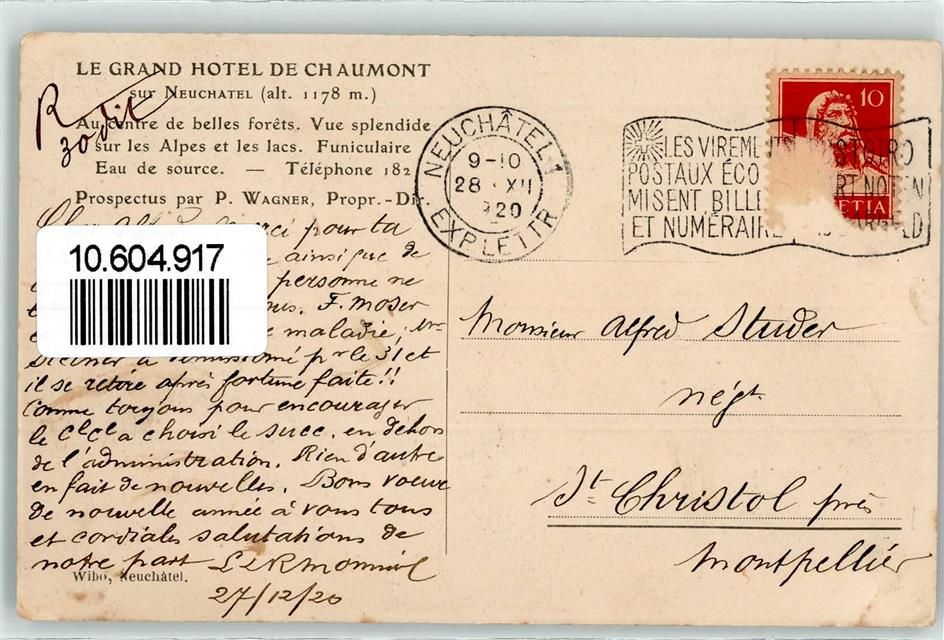 LE GRAND HOTEL DE CHAUMONT
sur NEUCHATEL (alt. 1178 m.)
Au centre de belles forêts. Vue splendide
sur les Alpes et les lacs. Funiculaire
Eau de source. — Téléphone 182
Prospectus par P. WAGNER, Propr.-Dir.
R
30
NEUCHÂTEL 1
9-10
28 XII
1920
EXP. LETTR
LES VIREME
POSTAUX ÉCO
MISENT BILLE
ET NUMÉRAIRE
10
pour ta
ainsi que de
personne ne
F. Moser
maladie; Mr
a démissionné pr le 31 et
il se retire après fortune faite!!
Comme toujours pour encourager
le a choisi le succ. en dehors
de l'administration. Rien d'autre
en fait de nouvelles. Bons voeux
de nouvelle année à vous tous
et cordiales salutations de
notre part
27/12/20
Wibo, Neuchâtel.
10.604.917
Monsieur Alfred Studer
négt
St. Christol près
Montpellier